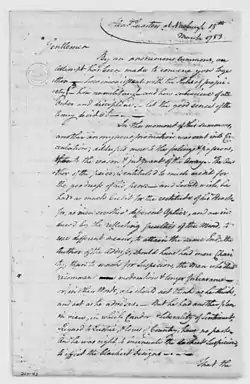 Head Quarters, Newburgh 15th
March 1783
Gentlemen
By an anonymous summons, an
attempt has been made to convene you toge-
ther — how inconsistent with the rules of propri-
ety! how unmilitary! and how subversive of all
order and discipline, let the good sense of the
Army decide. —
In the moment of this summons,
another anonymous production was sent into cir-
culation; addressed more to the feelings & passions,
than to the reason & judgment of the Army. — The au-
thor of the piece, is entitled to much credit for
the goodness of his Pen, and I could wish he
had as much credit for the rectitude of his Heart —
for, as men see thro' different Optics, and are in-
duced by the reflecting faculties of the Mind, to
use different means to attain the same end; the
Author of the Address, should have had more Chari-
ty, than to mark for Suspicion, the Man who should
recommend moderation & longer forbearance —
or, in other words, who should not think as he thinks,
and act as he advises. — But he had another plan
in view, in which Candor & liberality of Sentiment,
regard to justice & love of Country, have no part;
and he was right to insinuate the darkest suspicion
to effect the blackest designs. —
That the